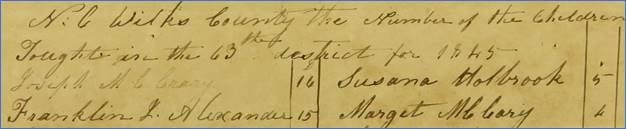 N. C Wilks County the Number of the Children
Toughte in the 63th district for 1845
Joseph McCrary 16 Susana Holbrook 5
Franklin J. Alexander 15 Marget McCary 4